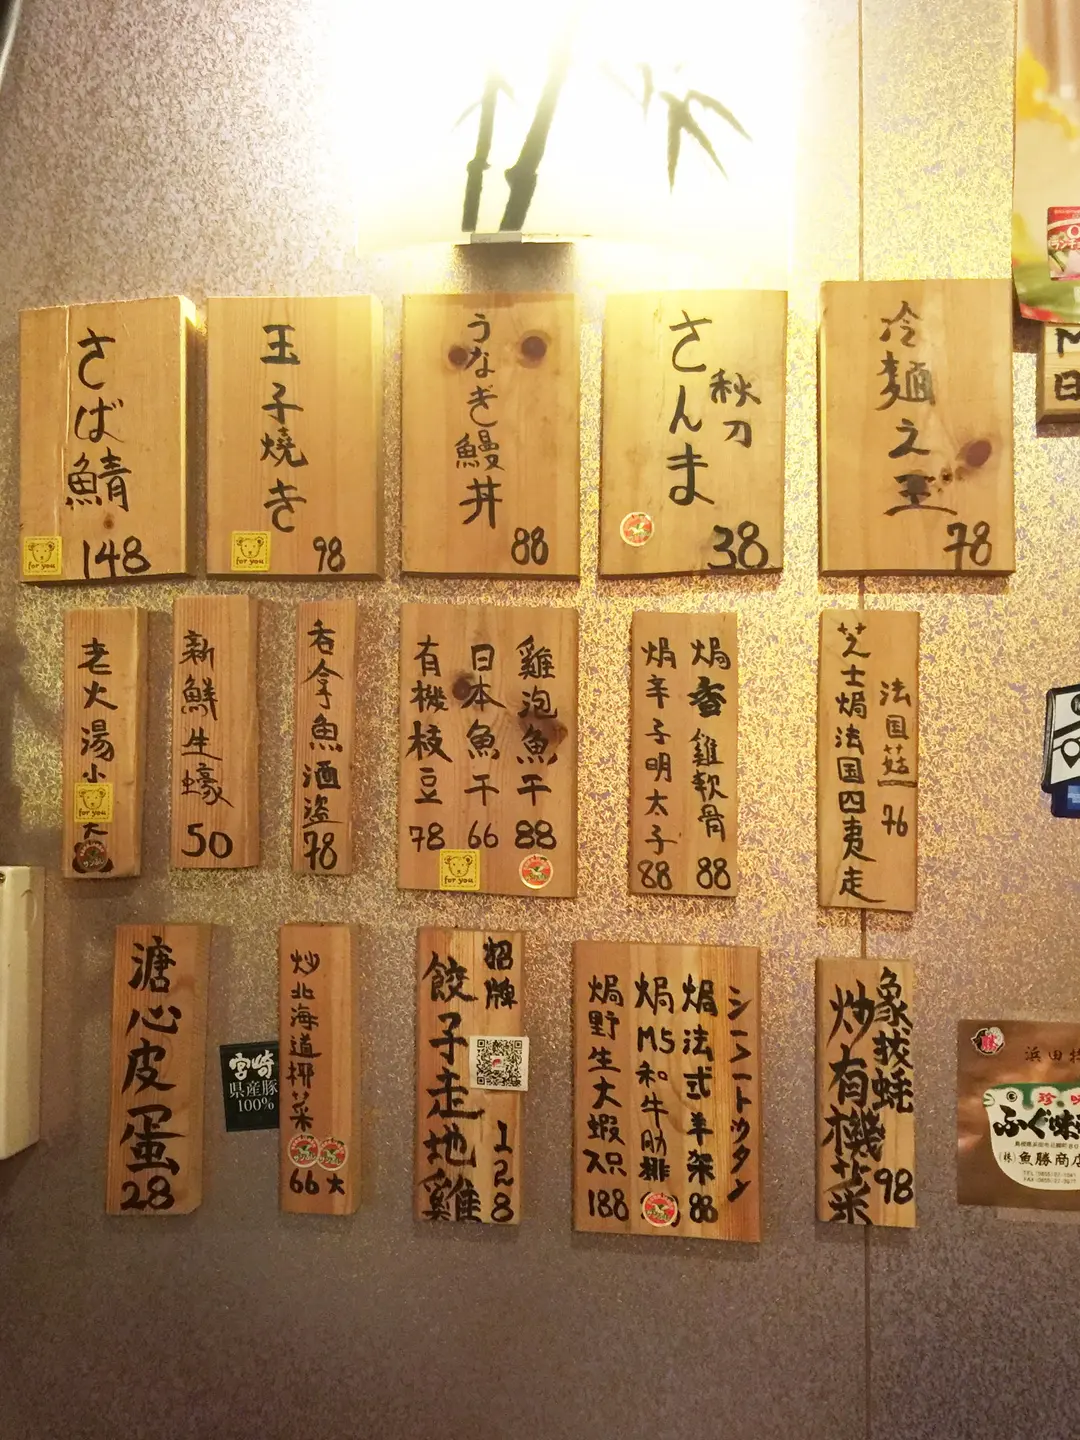 さば鯖
148
for you
玉子燒き
98
for you
うなぎ鰻丼
88
さんま
秋刀
38
冷麵之王
78
日
老火湯
for you
新鮮生蠔
50
吞拿魚酒盜
78
雞泡魚干
88
日本魚干
66
有機枝豆
78
for you
焗
雞軟骨
88
焗辛子明太子
88
法国菇
76
芝士焗法国四夷走
溏心皮蛋
28
宮崎
県産豚
100%
炒北海道椰菜
66
大
招牌
餃子走地雞
128
焗法式羊架
88
焗M5和牛肋排
焗野生大蝦
188
象拔蚝
炒有機菜
98
浜田
珍味
ふぐ味
(株)魚勝商店